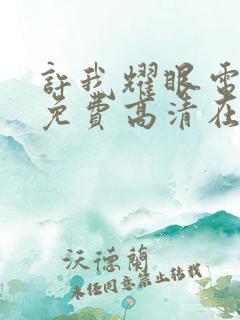 許我耀眼電
免費高清在
沃德蘭
未经同意禁止转载